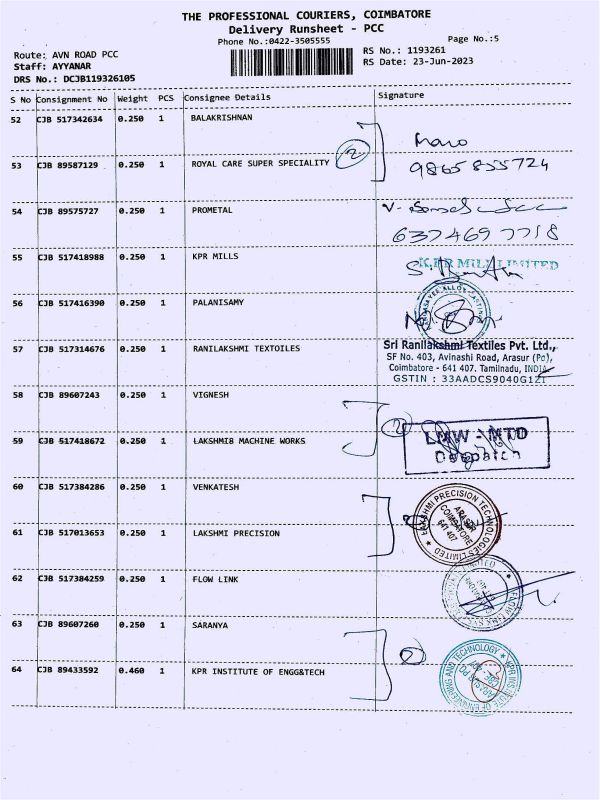 THE PROFESSIONAL COURIERS, COIMBATORE
Delivery Runsheet - PCC
Phone No.:0422-3505555
Page No.:5
Route: AVN ROAD PCC
RS No.: 1193261
Staff: AYYANAR
RS Date: 23-Jun-2023
DRS No.: DCJB119326105
S No Consignment No Weight PCS Consignee Details Signature
52 CJB 517342634 0.250 1 BALAKRISHNAN
53 CJB 89587129 0.250 1 ROYAL CARE SUPER SPECIALITY 2
9865855724
54 CJB 89575727 0.250 1 PROMETAL
6374697718
55 CJB 517418988 0.250 1 KPR MILLS K.P.R MILL LIMITED
56 CJB 517416390 0.250 1 PALANISAMY
57 CJB 517314676 0.250 1 RANILAKSHMI TEXTOILES
Sri Ranilakshmi Textiles Pvt. Ltd.,
SF No. 403, Avinashi Road, Arasur (Po),
Coimbatore - 641 407. Tamilnadu, INDIA
GSTIN : 33AADCS9040G1Z1
58 CJB 89607243 0.250 1 VIGNESH
59 CJB 517418672 0.250 1 LAKSHMI8 MACHINE WORKS 2
LMW - MTD
Despatch
60 CJB 517384286 0.250 1 VENKATESH
61 CJB 517013653 0.250 1 LAKSHMI PRECISION
LAKSHMI PRECISION TECHNOLOGIES LIMITED
ARASUR
COIMBATORE
641 407
62 CJB 517384259 0.250 1 FLOW LINK
63 CJB 89607260 0.250 1 SARANYA
64 CJB 89433592 0.460 1 KPR INSTITUTE OF ENGG&TECH 2
KPR INSTITUTE OF ENGINEERING AND TECHNOLOGY